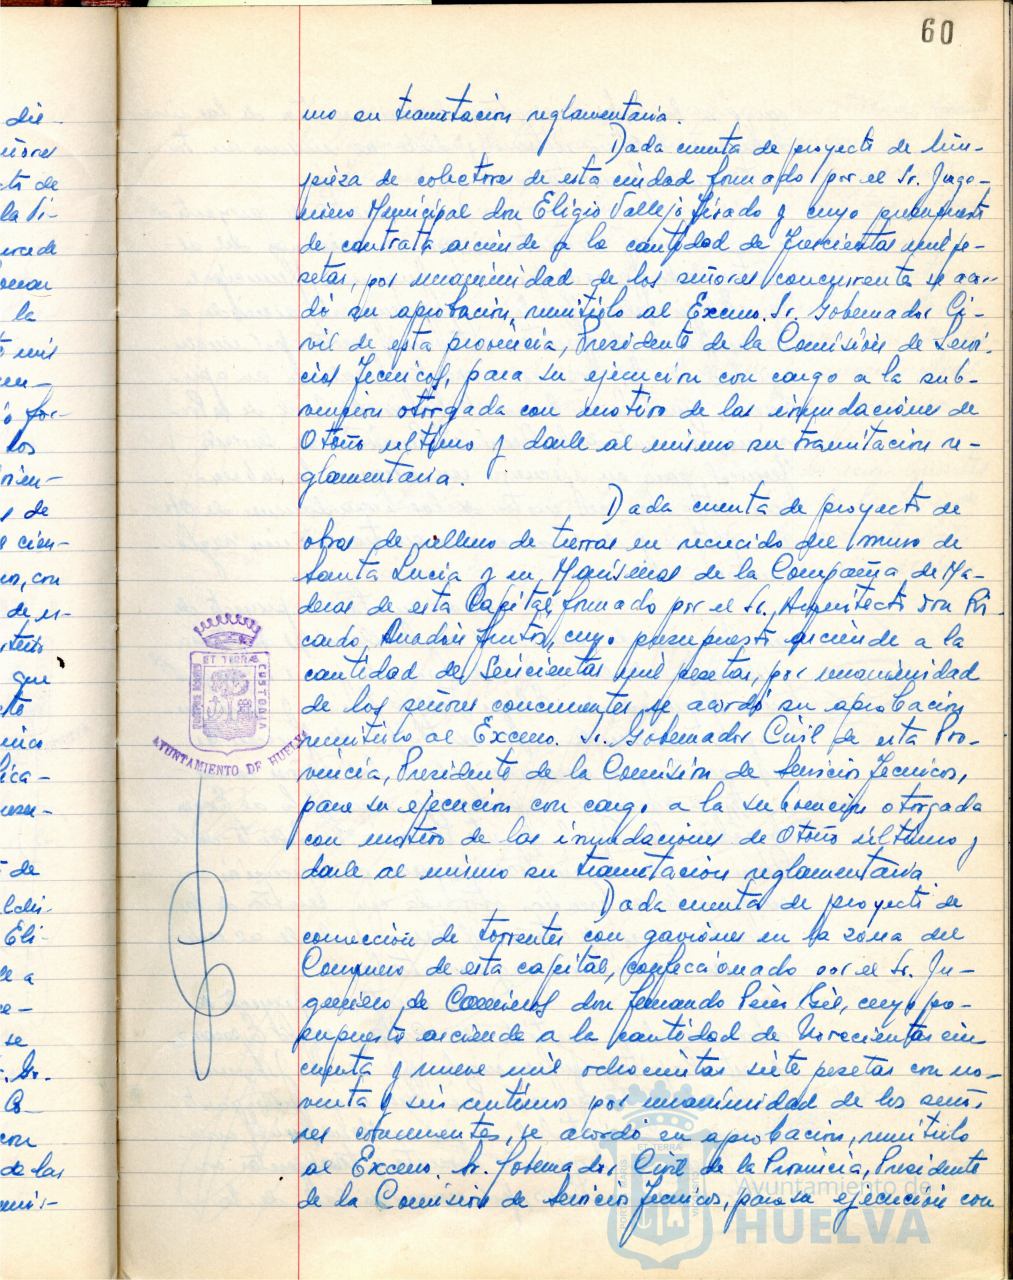 60
mo su tramitación reglamentaria.
Dada cuenta de proyecto de lim-
pieza de colectores de esta ciudad formado por el Sr. Inge-
niero Municipal don Eligio Vallejo Tirado y cuyo presupuesto
de contrata asciende a la cantidad de Trescientas mil pe-
setas, por unanimidad de los señores concurrentes se acor-
dó su aprobación, remitirlo al Excmo. Sr. Gobernador Ci-
vil de esta provincia, Presidente de la Comisión de Servi-
cios Tecnicos, para su ejecución con cargo a la sub-
vención otorgada con motivo de las inundaciones de
Otoño ultimo y darle al mismo su tramitación re-
glamentaria.
Dada cuenta de proyecto de
obras de relleno de tierras en recrecido del muro de
Santa Lucia y en Marismas de la Compañia de Ma-
deras de esta Capital, formado por el Sr. Arquitecto don Ri-
cardo Anadón Frutos, cuyo presupuesto asciende a la
cantidad de Seiscientas mil pesetas, por unanimidad
de los señores concurrentes se acordó su aprobación
remitirlo al Excmo. Sr. Gobernador Civil de esta Pro-
vincia, Presidente de la Comisión de Servicios Tecnicos,
para su ejecución con cargo a la subvención otorgada
con motivo de las inundaciones de Otoño ultimo y
darle al mismo su tramitación reglamentaria
Dada cuenta de proyecto de
corrección de torrentes con gaviones en la zona del
Conquero de esta capital, confeccionado por el Sr. In-
geniero de Caminos don Fernando cuyo pre-
supuesto asciende a la cantidad de Novecientas cin-
cuenta y nueve mil ochocientas siete pesetas con no-
venta y seis centimos por unanimidad de los seño-
res concurrentes, se acordó su aprobación, remitirlo
al Excmo. Sr. Gobernador Civil de la Provincia, Presidente
de la Comision de Servicios Tecnicos, para su ejecución con
ET TERRÆ
CUSTODIA
AYUNTAMIENTO DE HUELVA
Ayuntamiento de
HUELVA